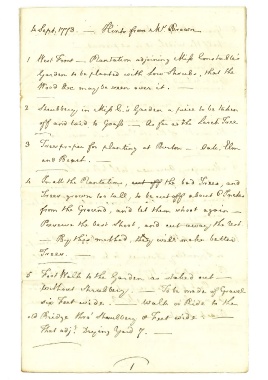 4 Sept. 1773. — Hints from Mr. Brown
1 West Front — Plantation adjoining Miss Constable's
Garden to be planted with Low Shrubs, that the
Wood &c may be seen over it. —
2 Shrubbery in Miss C.'s Garden a piece to be taken
off and laid to Grass — As far as the Larch Tree
3 Trees proper for planting at Burton — Oak, Elm
and Beech. —
4 In all the Plantations, the bad Trees, and
Trees grown too tall, to be cut off about 6 Inches
from the Ground, and let them shoot again —
Preserve the best Shoot, and cut away the rest
— By this method they will make better
Trees. —
5 Foot Walk to the Garden as staked out —
Without Shrubbery — To be made of Gravel
six Feet wide. — Walk or Ride to the
old Bridge thro' Shrubbery 8 Feet wide —
That adj. Drying Yard 7. —
1